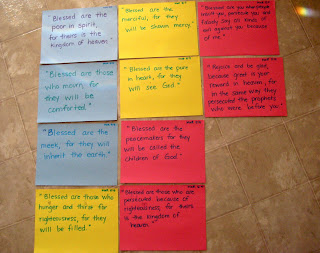 "Blessed are the
poor in spirit,
for theirs is the
kingdom of heaven."
"Blessed are those
who mourn, for
they will be
comforted."
"Blessed are the
meek, for they will
inherit the earth."
"Blessed are those who
hunger and thirst for
righteousness, for they
will be filled."
"Blessed are the
merciful, for they
will be shown mercy."
"Blessed are the pure
in heart, for they
will see God."
"Blessed are the
peacemakers for they
will be called the
children of God."
"Blessed are those who are
persecuted because of
righteousness, for theirs
is the kingdom of
heaven."
"Blessed are you when people
insult you, persecute you and
falsely say all kinds of
evil against you because
of me."
"Rejoice and be glad,
because great is your
reward in heaven, for
in the same way they
persecuted the prophets
who were before you."